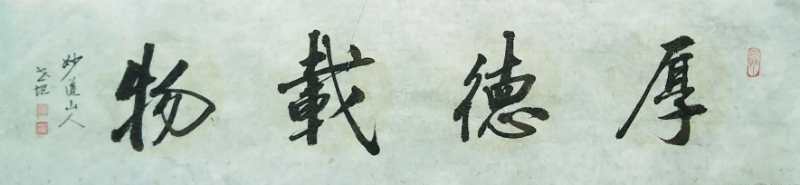 厚德載物
妙道山人